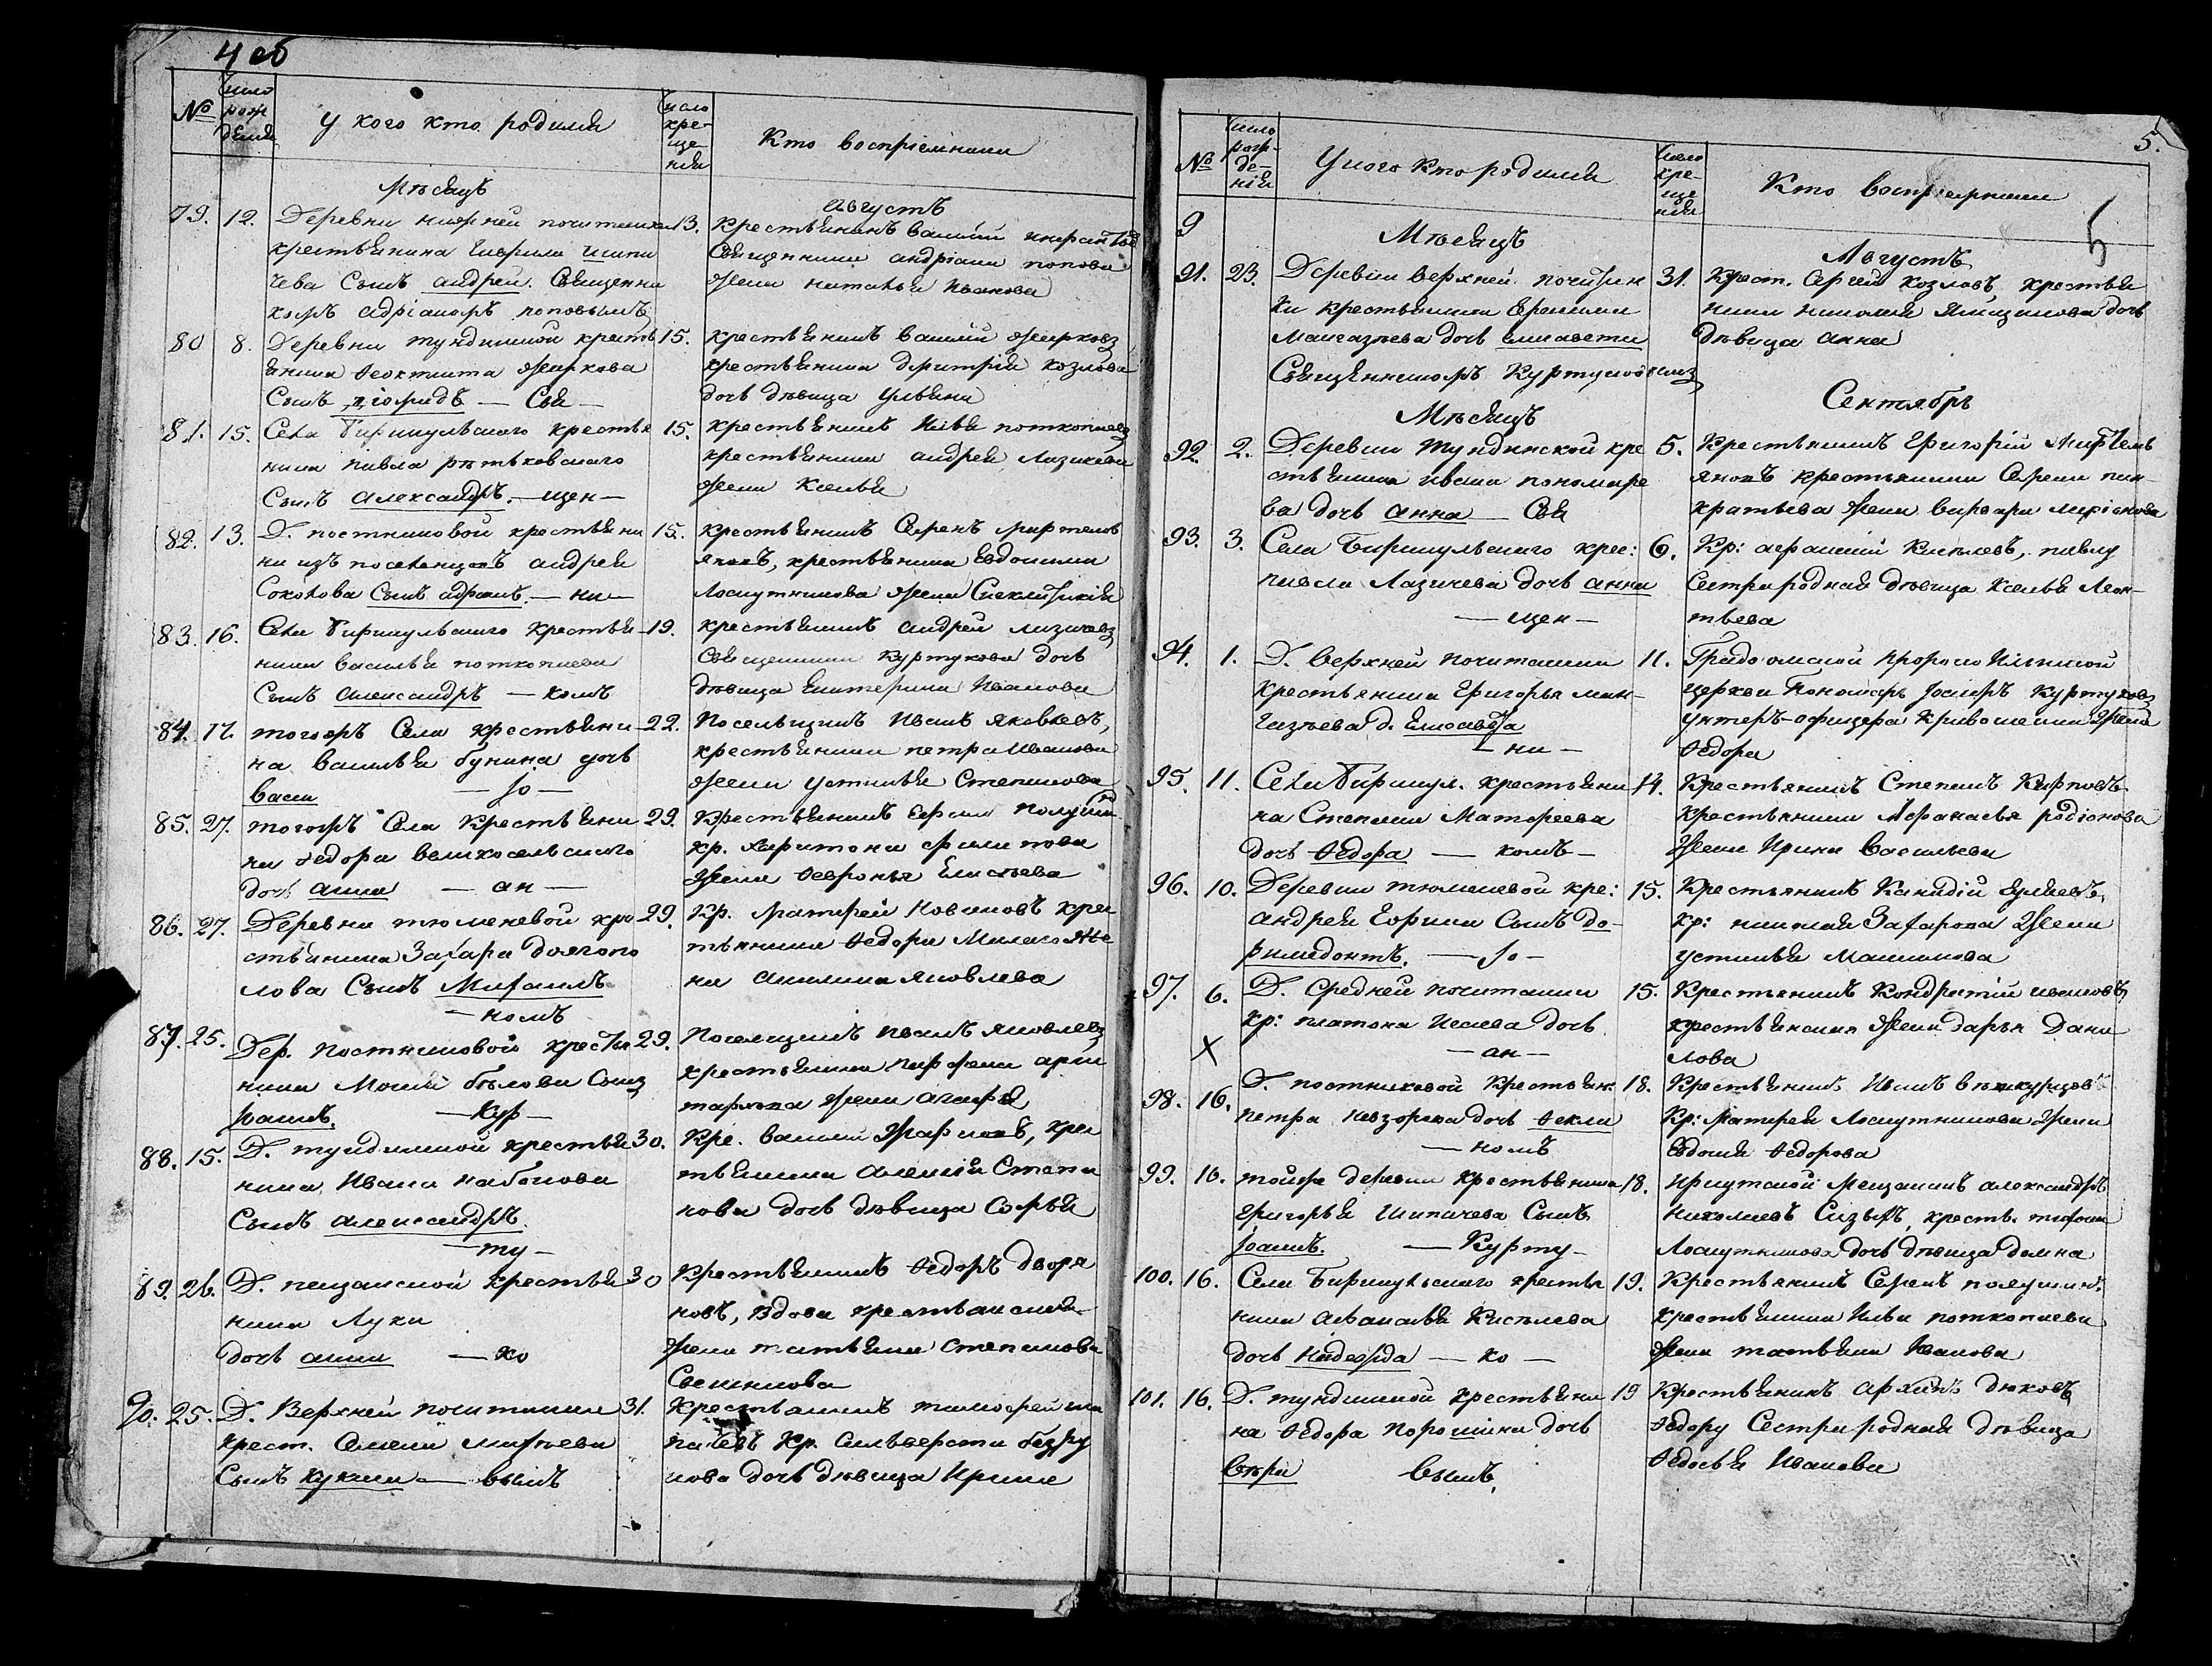 4 об
№
Число
рож
денія
У кого кто родился
Число
кре-
ще-
нія
Кто воспріемники
Мѣсяцъ
Августъ
79. 12. Деревни нижней почитанки
крестьянина Гаврила Шипи
чева Сынъ андрей. Священни
комъ адріаномъ поповымъ
13. крестьянинъ василій
Священника андріана попова
жена наталья Иванова
80 8. Деревни тундинской кресть
янина Феоктиста Жаркова
Сынъ діомидъ — Свя —
15. крестьянинъ василій Жарковъ
крестьянина Дмитрія козлова
дочь дѣвица Ульяна
81. 15. Села Бирюульскаго крестья
нина павла рѣтьковскаго
Сынъ александръ. — щен —
15. крестьянинъ Илья поткопаевъ
крестьянина андрея Лазикова
жена Ксенья
82. 13. Д. постниковой крестьяни
на изъ поселенцовъ андрея
Соколова Сынъ адріанъ. — ни —
15. крестьянинъ Семенъ мартемь
яновъ, крестьянина Евдокима
Лоскутникова жена
83. 16. Села Бирюульскаго крестья
нина василья поткопаева
Сынъ александръ — комъ
19. крестьянинъ андрей лазичевъ
Священника Куртукова дочь
дѣвица Екатерина Иванова
84. 17. тогожъ Села крестьяни
на василья бунина дочь
васса — Іо —
22. Поселыцикъ Иванъ яковлевъ,
крестьянина петра Иванова
жена устинья Степанова
85. 27. тогожъ Села Крестьяни
на Федора великосельскаго
дочь анна — ан —
29. Крестьянинъ Ефимъ
кр. Харитона филипова
жена Февронья Елисѣева
86. 27. Деревни тюменевой кре
стьянина Захара долгопо
лова Сынъ Михаилъ
— номъ
29. Кр. Матфей новиковъ крес
тьянина Федора Миласо же
на акилина яковлева
87. 25. Дер. Постниковой крестья
нина Моисея бѣлова Сынъ
Іоаннъ. — Кур —
29. Поселыцикъ Иванъ яковлевъ
крестьянина парфена
жена агафья
88. 15. Д. тундинской крестья
нина Ивана набокова
Сынъ александръ.
— ту —
30. Кре. василій Жарковъ, крес
тьянина алексѣя Степа
нова дочь дѣвица Софья
89. 26. Д. пещанской крестья
нина Луки
дочь анна — ко
30 Крестьянинъ Федоръ дворя
новъ, вдова крестьянская
жена татьяна Степанова
90. 25. Д. Верхней почитанки
крест. Семена михѣева
Сынъ — вымъ
31. Крестьянинъ тимофей
кр. Сильверста безру
кова дочь дѣвица Ирина
5.
№
Число
рож-
де-
нія
У кого кто родился
Число
кре-
ще
нія
Кто воспріемники
5
9
Мѣсяцъ
Августъ
91. 23. Деревни верхней почитан
ки крестьянина Еремея
Мангазѣева дочь елисавета
Священникомъ Куртуковымъ
31. Крест. Сергей козловъ, крестья
нина николая Ямщикова дочь
дѣвица анна
Мѣсяцъ
Сентябрь
92. 2. Деревни Тундинской кре
стьянина ивана пономаре
ва дочь анна — Свя
5. Крестьянинъ Григорій Мартемь
яновъ крестьянина Семена пан-
кратьева жена варвара
93. 3. Села Бирюульскаго крес:
павла Лазичева дочь анна
— щен —
6. Кр: афанасій Киселевъ, павлу
Сестра родная дѣвица Ксенья Леон-
тьева
94. 1. Д. верхней почитанки
крестьянина Григорья ман-
газѣева д. Елисавета
— ни —
11. Градо омской пророко Ильинской
церкви Пономарь Іоаннъ Куртуковъ
унтеръ-офицера Кривошеина жена
Федора
95. 11. Села Бирюул. крестьяни
на Степана Матфеева
дочь Федора — комъ —
14. Крестьянинъ Степанъ Карповъ
крестьянина Афанасья родіонова
жена Ирина васильева
96. 10. Деревни тюменевой кре:
андрея Ефима Сынъ до-
римедонтъ. — Іо —
15. Крестьянинъ Канидій
кр: николая Захарова жена
устинья
97. 6. Д. Средней почитанки
кр: платона Исаева дочь
— ан —
X
15. Крестьянинъ Кондратій ивановъ
крестьянская жена дарья Дани
лова
98. 16. Д. постниковой Крестьян.
петра невзорова дочь Фекла
— номъ
18. Крестьянинъ Иванъ
Кр: Матфея Лоскутникова жена
Евдокія Федорова
99. 16. тойже деревни крестьянина
Григорья Шипичева Сынъ
Іоаннъ. — Курту —
18. Иркутской мещанинъ александръ
николаевъ Сизыхъ, кресть.
Лоскутникова дочь дѣвица домна
100. 16. Села Бирюульскаго крестья
нина афанасья Киселева
дочь надежда — ко —
19. Крестьянинъ Семенъ
крестьянина Ильи поткопаева
жена татьяна Иванова
101. 16. Д. тундинской крестьяни
на Федора Порошина дочь
вѣра вымъ.
19 Крестьянинъ архипъ дюковъ
Федору Сестра родная дѣвица
Федосья Иванова